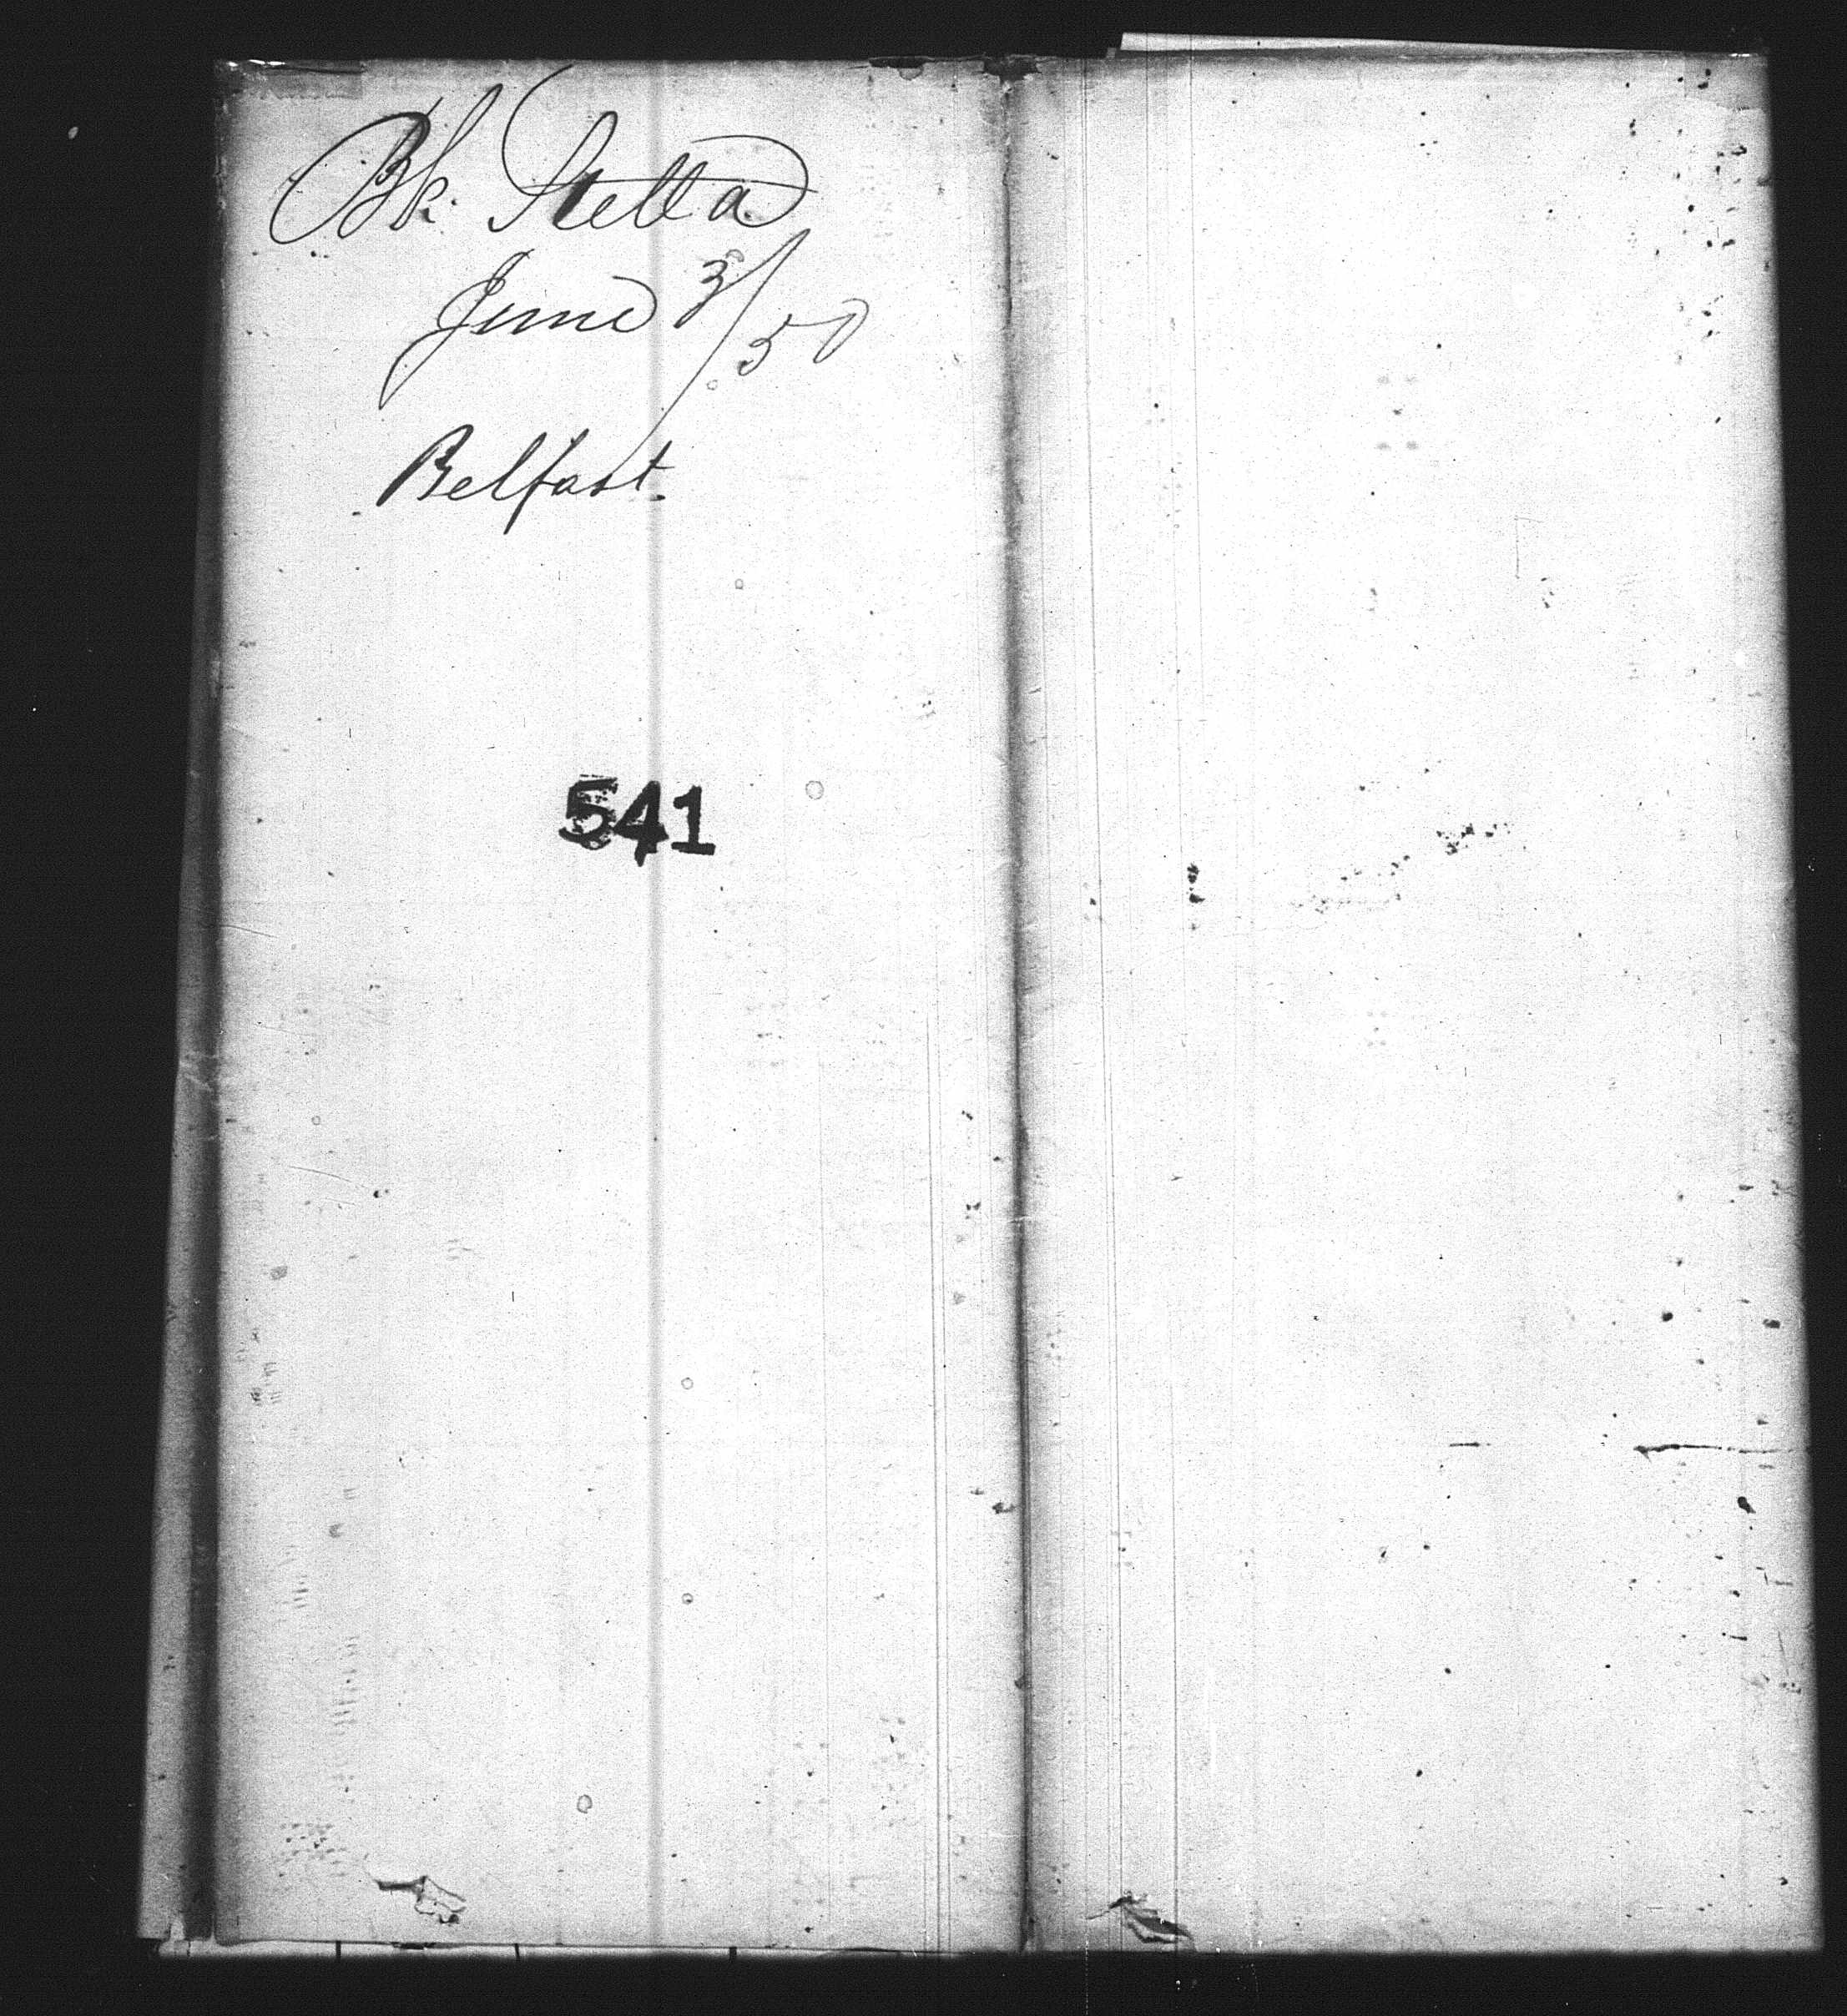 Bk. Stella
June 3/50
Belfast.
541